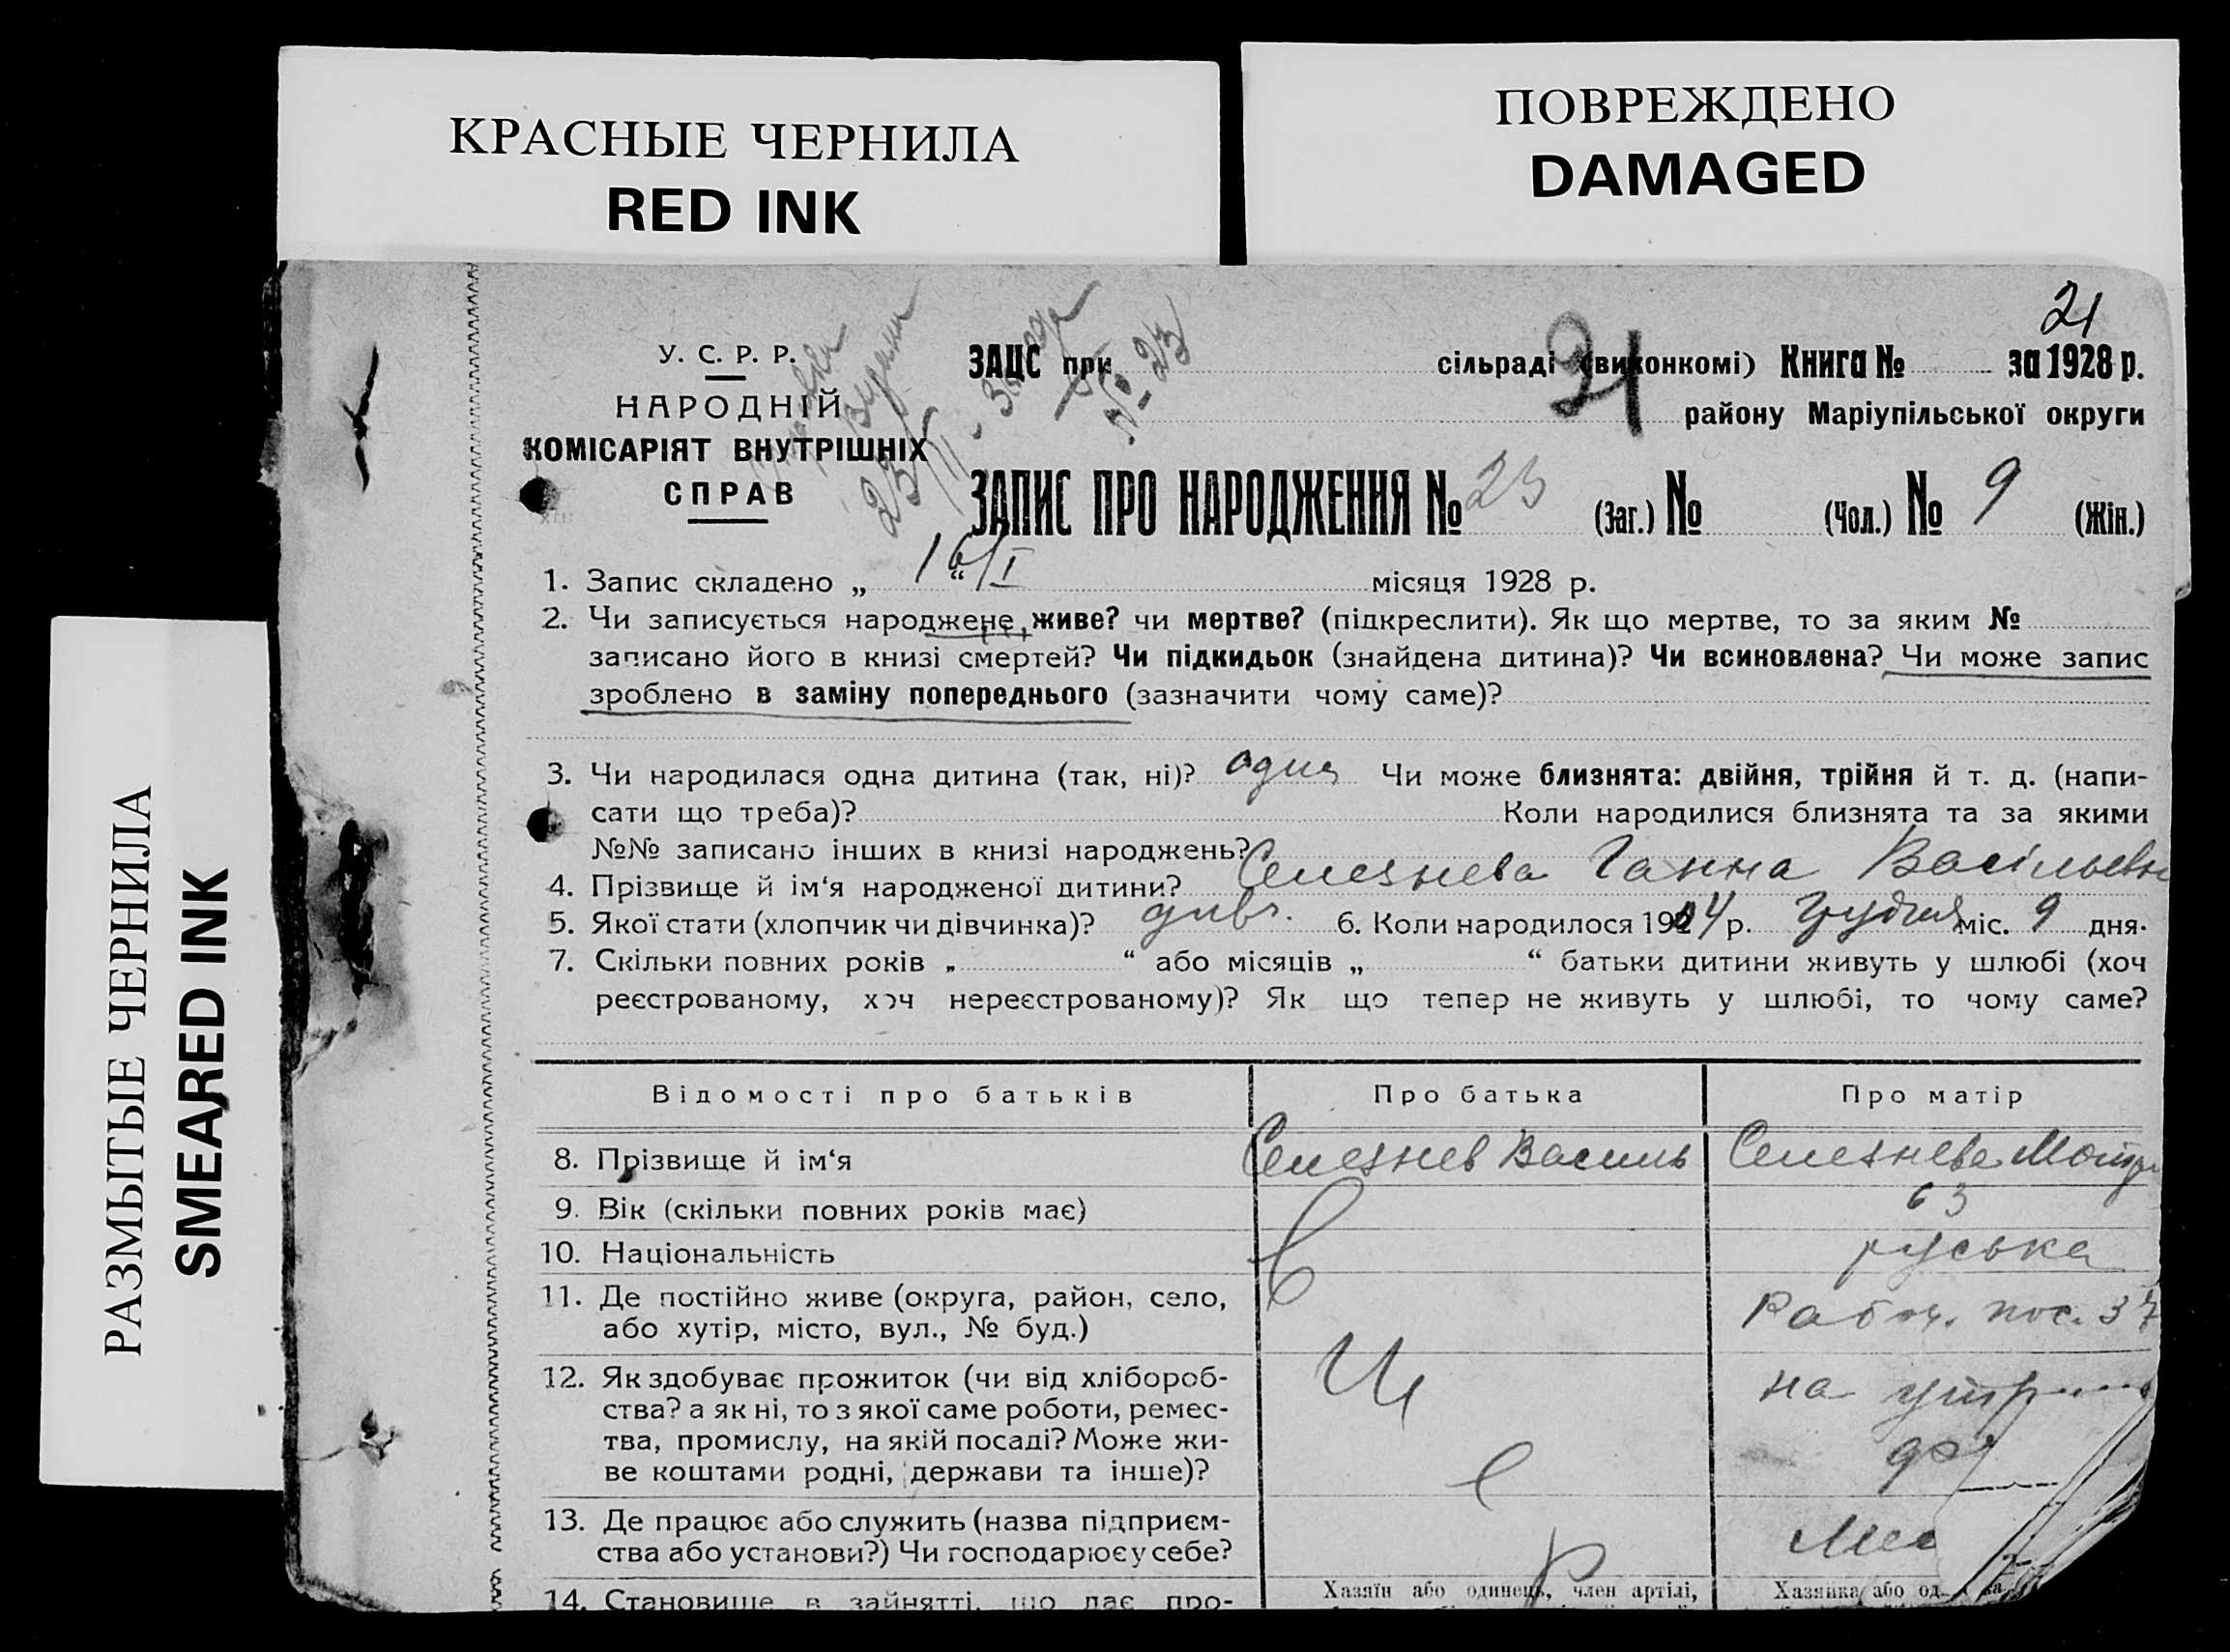 КРАСНЫЕ ЧЕРНИЛА
RED INK
ПОВРЕЖДЕНО
DAMAGED
РАЗМЫТЫЕ ЧЕРНИЛА
SMEARED INK
21
У. С. Р. Р.
НАРОДНІЙ
КОМІСАРІЯТ ВНУТРІШНІХ
СПРАВ
23/II
№ 23
ЗАЦС при сільраді (виконкомі) Книга № за 1928 р.
21
району Маріупільської округи
ЗАПИС ПРО НАРОДЖЕННЯ № 23 (Заг.) № (Чол.) № 9 (Жін.)
1. Запис складено „ 16/I “ місяця 1928 р.
2. Чи записується народжене живе? чи мертве? (підкреслити). Як що мертве, то за яким №
записано його в книзі смертей? Чи підкидьок (знайдена дитина)? Чи всиновлена? Чи може запис
зроблено в заміну попереднього (зазначити чому саме)?
3. Чи народилася одна дитина (так, ні)? одна Чи може близнята: двійня, трійня й т. д. (напи-
сати що треба)? Коли народилися близнята та за якими
№№ записано інших в книзі народжень?
4. Прізвище й ім‘я народженої дитини? Селезнева Ганна Васільевна
5. Якої стати (хлопчик чи дівчинка)? дивч. 6. Коли народилося 1904 р. Грудня міс. 9 дня.
7. Скільки повних років „ “ або місяців „ “ батьки дитини живуть у шлюбі (хоч
реєстрованому, хоч нереєстрованому)? Як що тепер не живуть у шлюбі, то чому саме?
Відомості про батьків Про батька Про матір
8. Прізвище й ім‘я Селезнев Василь Селезнева Мотр
9. Вік (скільки повних років має) 63
10. Національність руська
11. Де постійно живе (округа, район, село, Рабоч. пос. 37
або хутір, місто, вул., № буд.)
12. Як здобуває прожиток (чи від хлібороб- на
ства? а як ні, то з якої саме роботи, ремес-
тва, промислу, на якій посаді? Може жи-
ве коштами родні, держави та інше)?
13. Де працює або служить (назва підприєм-
ства або установи?) Чи господарює у себе?
14. Становище в зайнятті, що дає про- Хазяїн або одинець, член артілі, Хазяйка або од